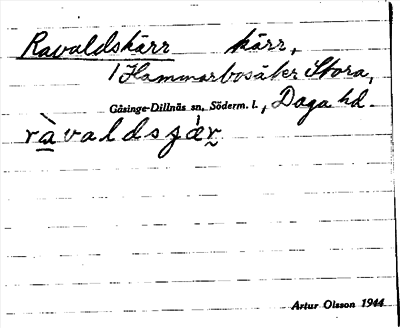 Ravaldskärr kärr,
1 Hammarbosäter Stora,
Gåsinge-Dillnäs sn, Söderm. l., Daga hd.
ràvaldsʒär
Artur Olsson 1944